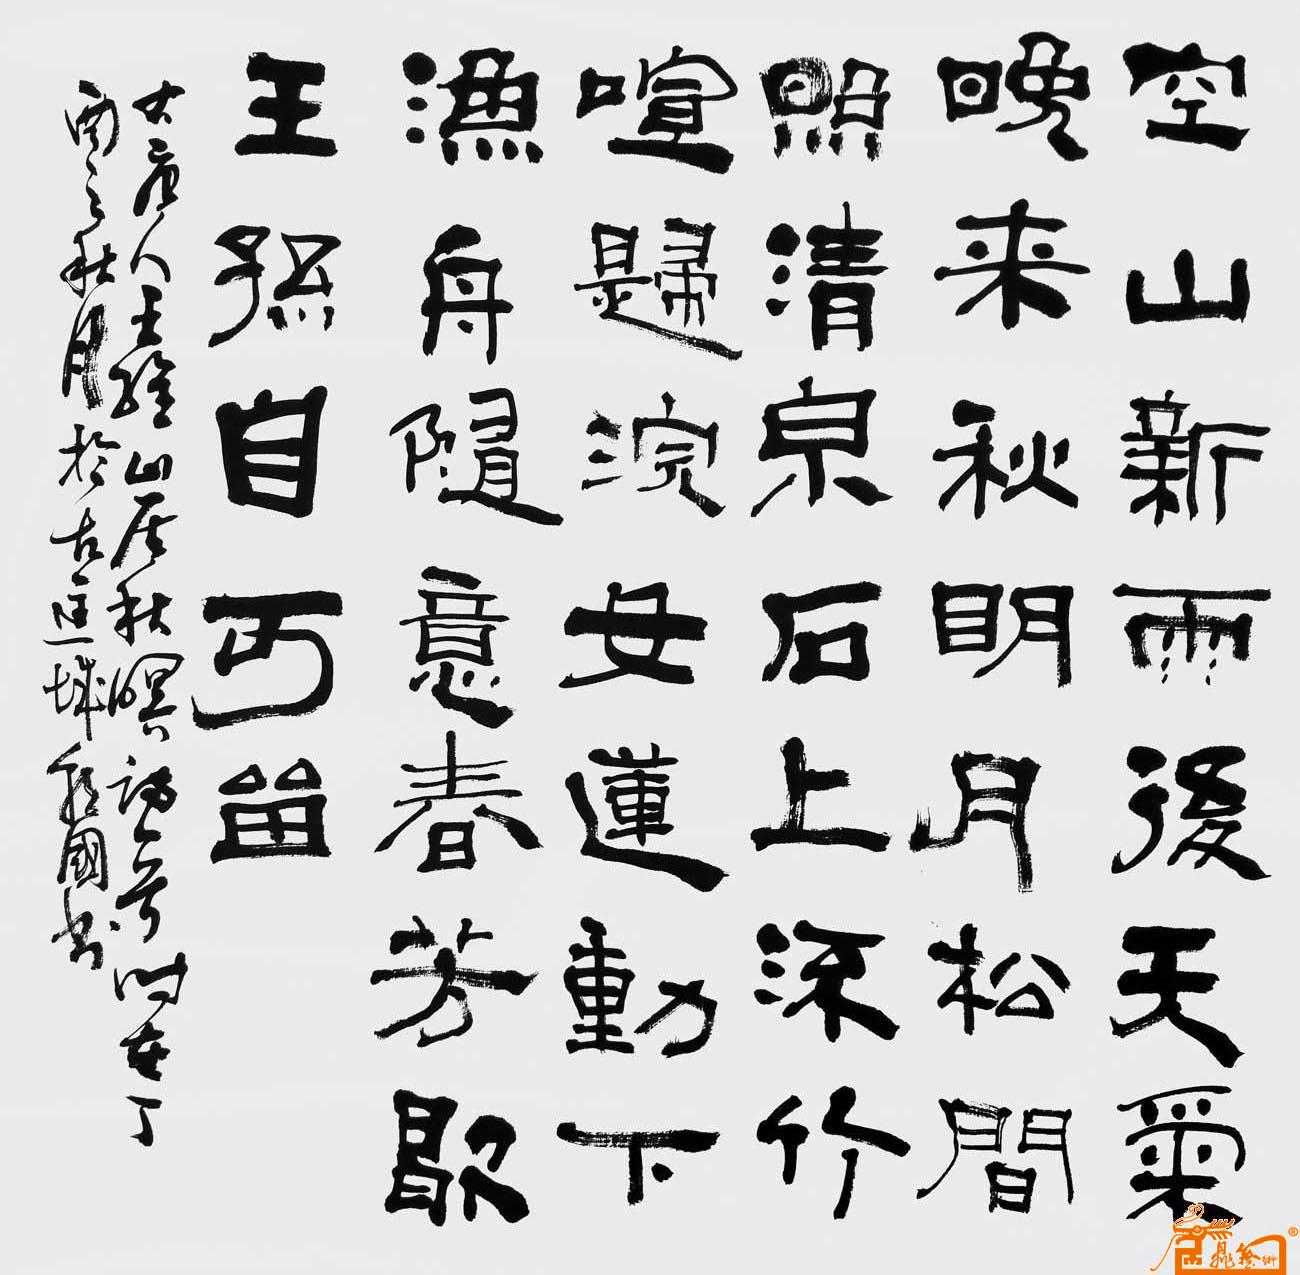 空山新雨後天氣
晚来秋明月松間
照清泉石上流竹
喧歸浣女蓮動下
漁舟隨意春芳歇
王孫自可留
唐人王維山居秋暝詩一首時在丁
酉之秋月於古匡城國書